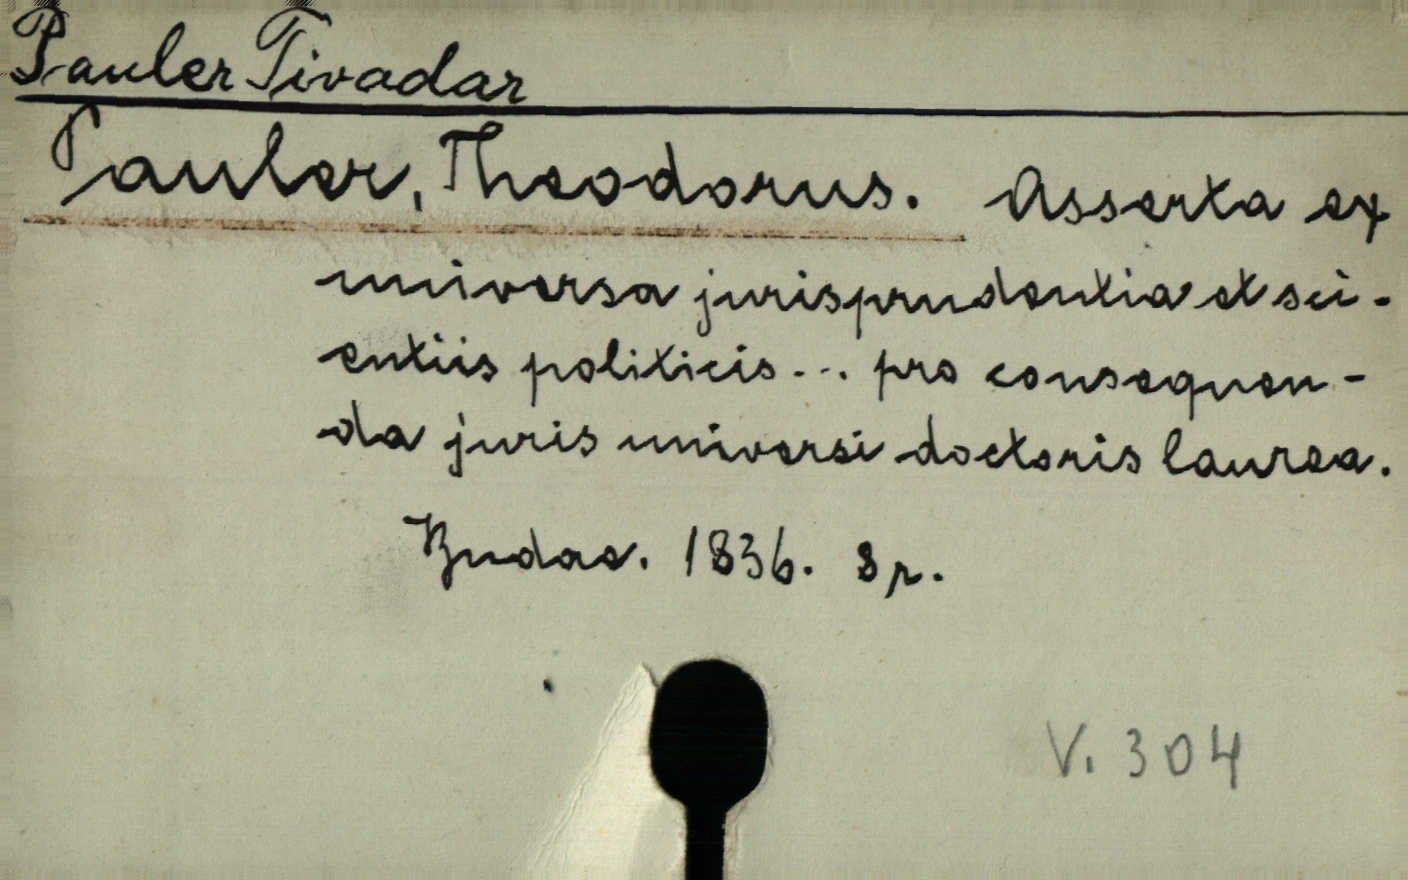 Pauler Tivadar
Pauler, Theodorus. Asserta ex
universa jurisprudentia et sci-
entiis politicis... pro consequen-
da juris universi doctoris laurea.
Budae. 1836. 8r.
V. 304